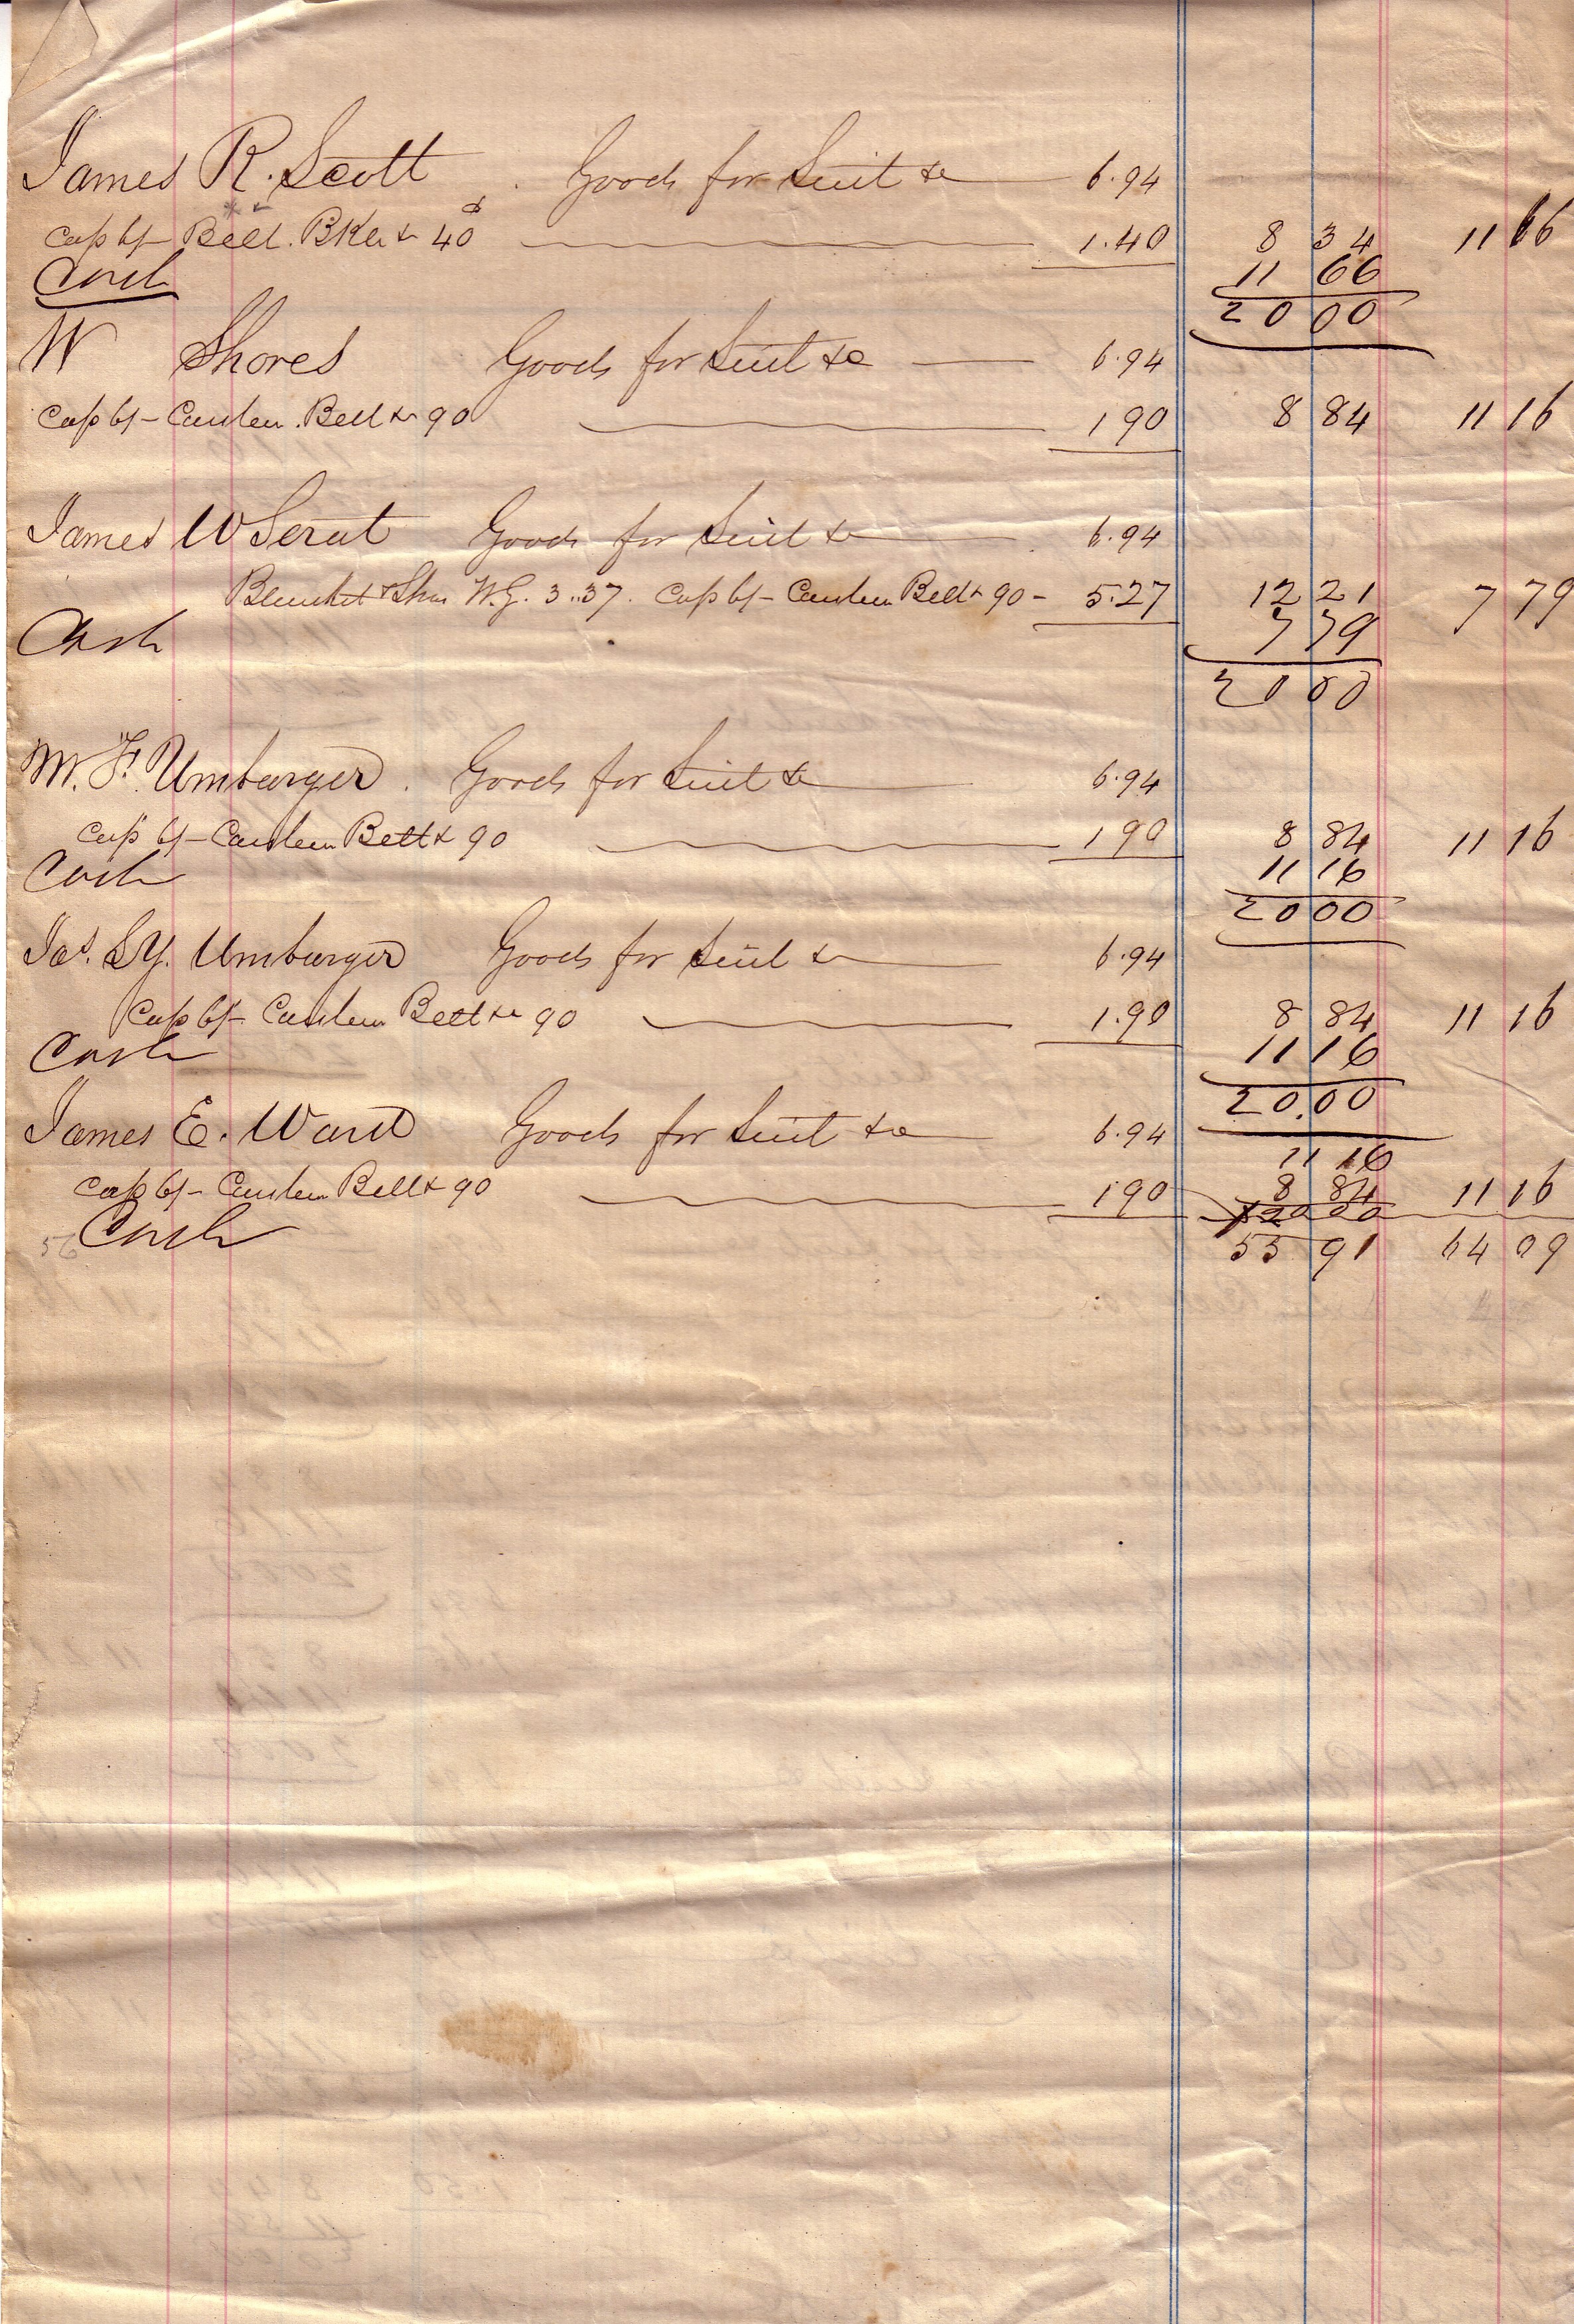 James R. Scott Goods for Suit &c 6.94
Cap 6/- Belt. Bkle &c 40 1.40 8 34 11 66
Cash 11 66
20 00
W Shores Goods for Suit &c 6.94
Cap 6/- Canteen. Belt &c 90 1 90 8 84 11 16
James W Serat Goods for Suit &c 6.94
Blanket & Shoes W.G. 3..37. Cap 6/- Canteen Belt & 90 - 5.27 12 21 7 79
Cash 7 79
20 00
M. F. Umbarger. Goods for Suit &c 6.94
Cap 6/- Canteen Belt & 90 1 90 8 84 11 16
Cash 11 16
20 00
Jas. S.Y. Umbarger Goods for Suit &c 6.94
Cap 6/- Canteen Belt &c 90 1.90 8 84 11 16
Cash 11 16
20.00
James E. Ward Goods for Suit &c 6.94
11 16
Cap 6/- Canteen Belt & 90 1 90 8 84 11 16
Cash 20 00
56 55 91 64 09